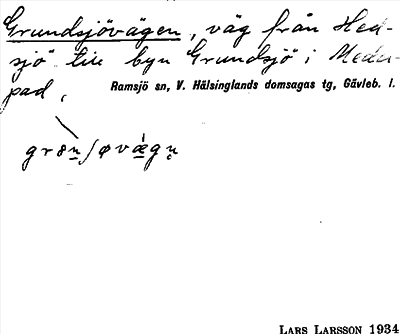 Grundsjövägen, väg från Hed-
sjö till byn Grundsjö i Medel-
pad,
Ramsjö sn, V. Hälsinglands domsagas tg, Gävleb. l.
LARS LARSSON 1934